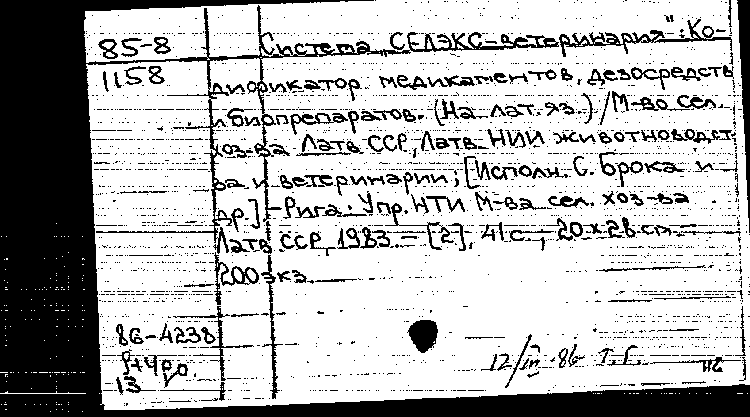 85-8
1158
Система „СЕЛЭКС-ветеринария": Ко-
дификатор медикаментов, дезосредств
и биопрепаратов. (На лат. яз.) / М-во сел.
хоз-ва Латв ССР, Латв. НИИ животноводст-
ва и ветеринарии; [Исполн. С. Брока и
др.] - Рига: Упр. НТИ М-ва сел. хоз-ва
Латв ССР, 1983. - [2], 41 с.; 20 x 28 см. -
200 экз.
86-4238
13
12/III-86 Т. Г.